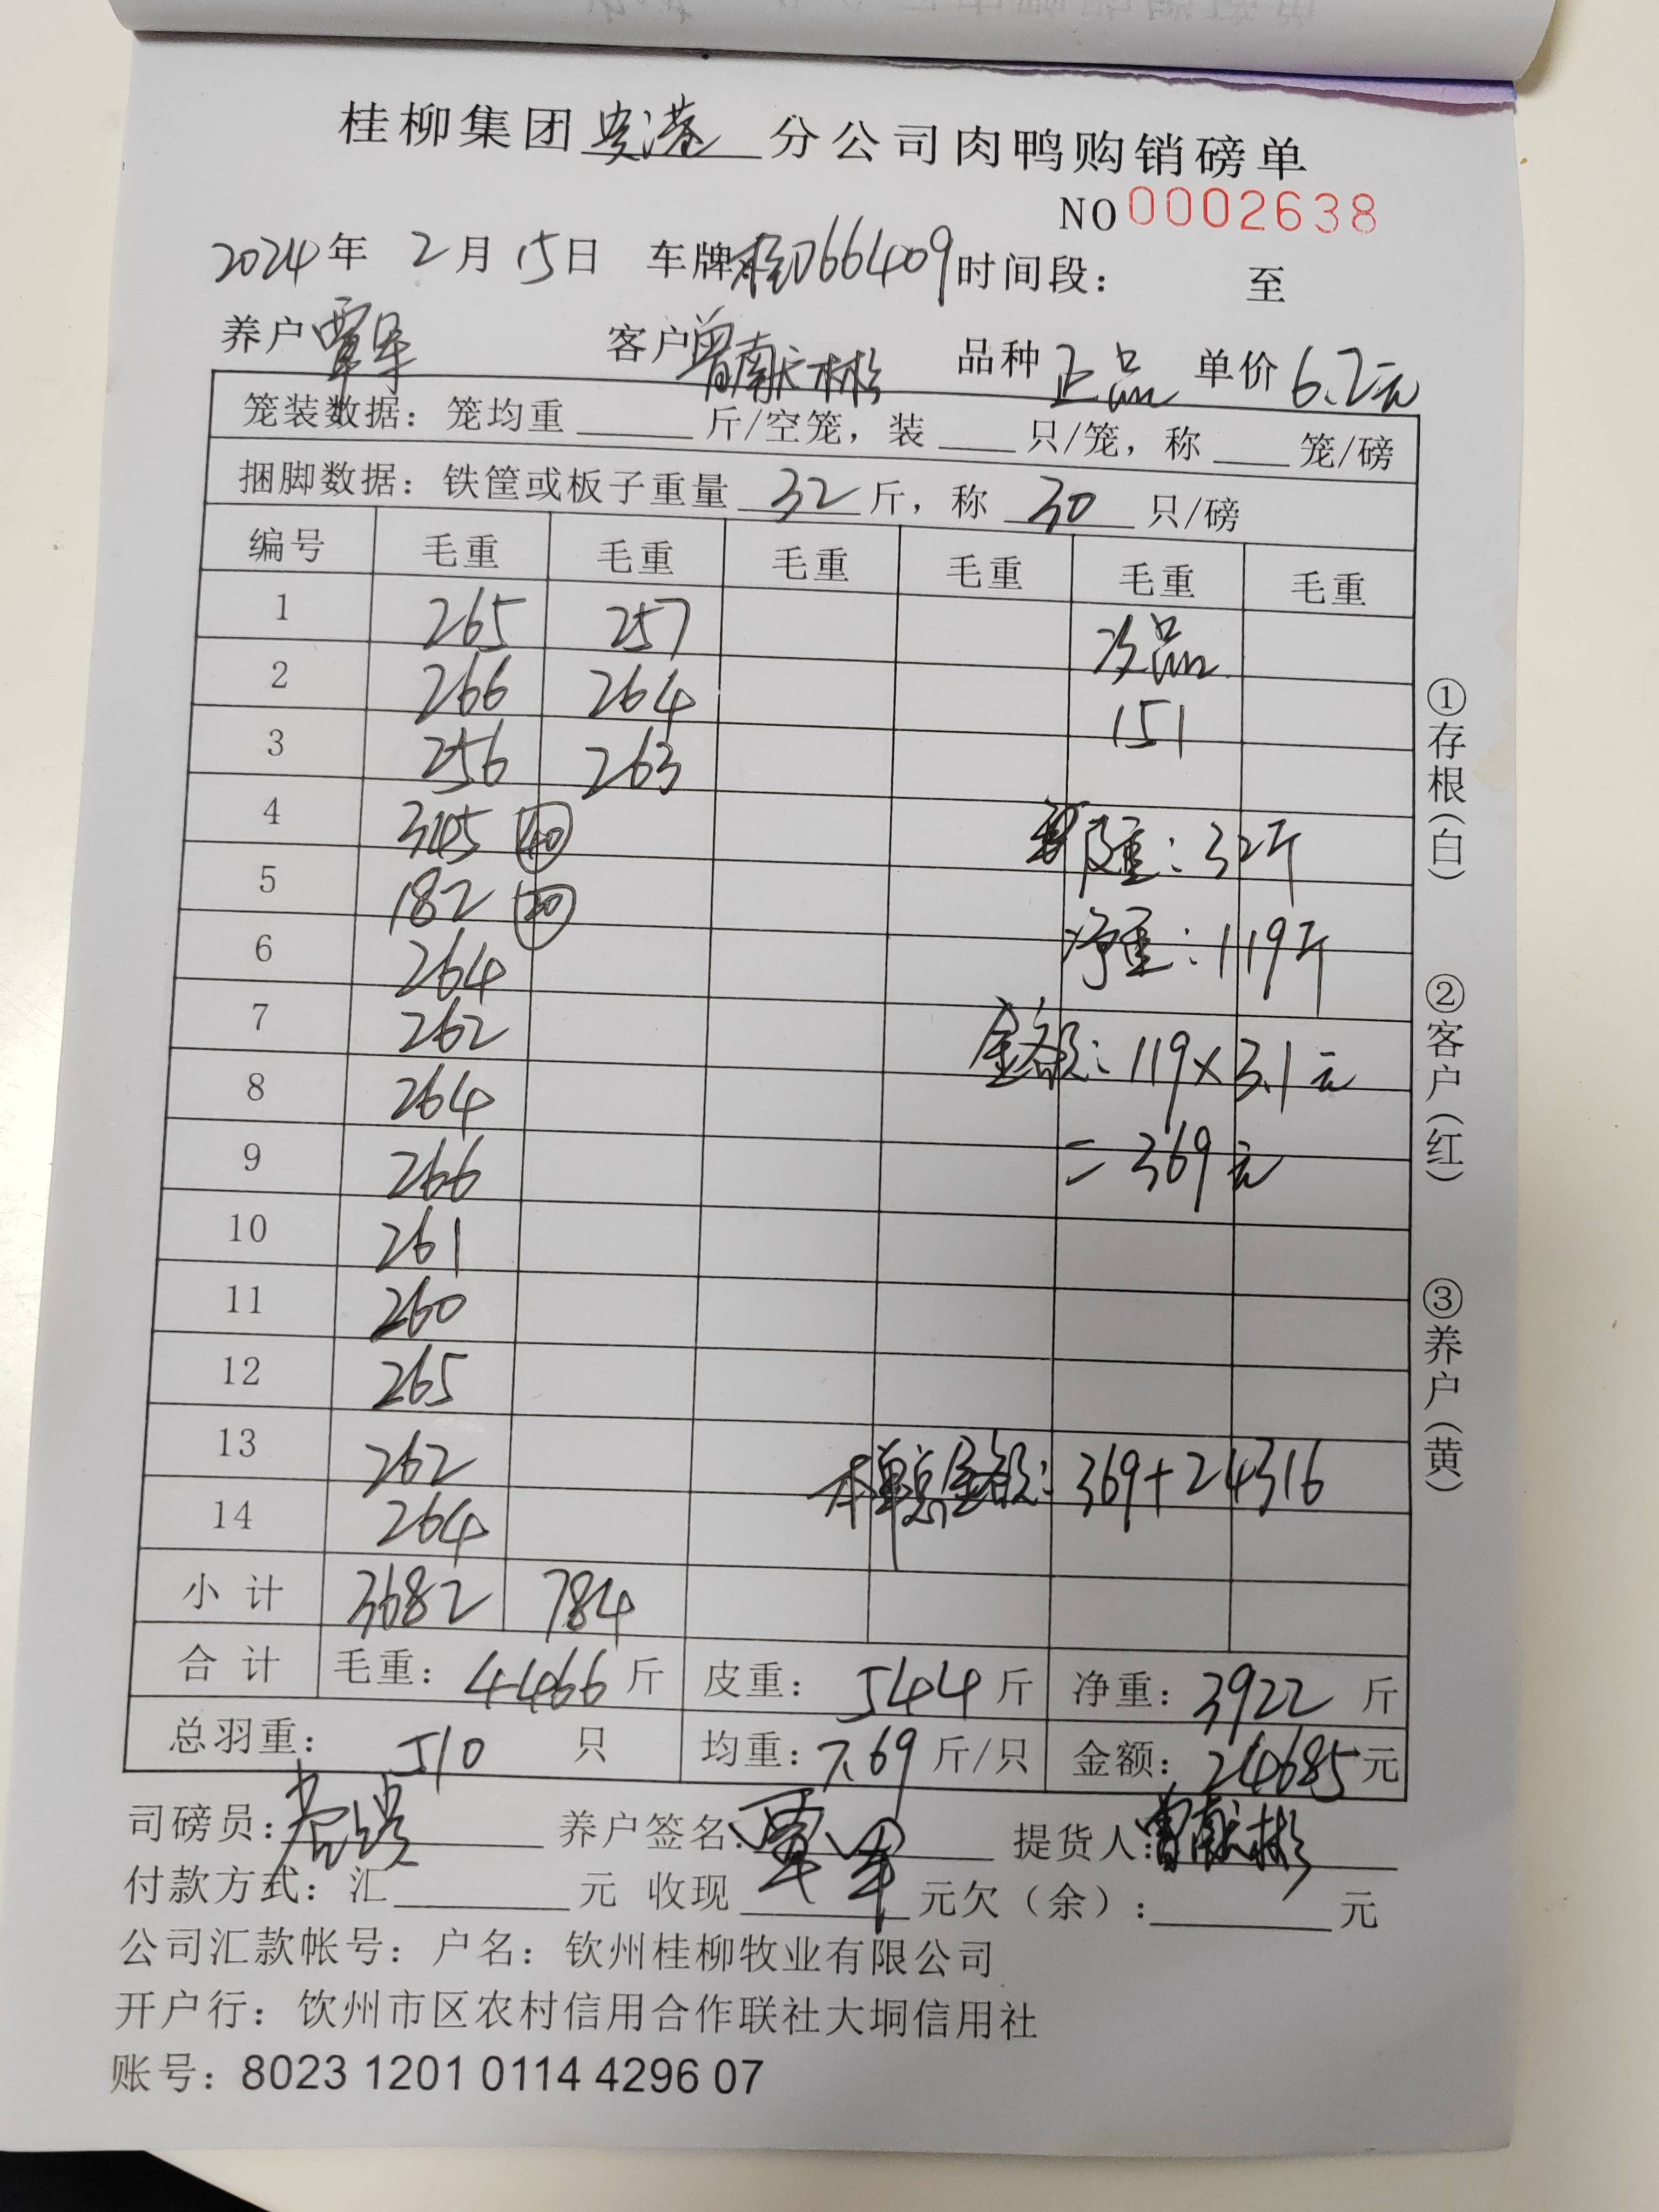 桂柳集团贵港分公司肉鸭购销磅单
NO 0002638
2024年 2月15日 车牌桂D66409时间段： 至
养户覃军 客户曾献彬 品种正品 单价6.2元
笼装数据：笼均重 斤/空笼，装 只/笼，称 笼/磅
捆脚数据：铁筐或板子重量 32 斤，称 30 只/磅
编号 毛重 毛重 毛重 毛重 毛重 毛重
1 265 257 次品
2 266 264 151
3 256 263
4 345 40 皮重：32斤
5 182 20
6 264 净重：119斤
7 262 金额：119×3.1元
8 264
9 266 =369元
10 261
11 260
12 265
13 262 本单总金额：369+24316
14 264
小计 3682 784
合计 毛重：4466斤 皮重：544斤 净重：3922斤
总羽重：510只 均重：7.69斤/只 金额：24685元
司磅员： 养户签名：覃军 提货人：曾献彬
付款方式：汇 元 收现 元欠（余）： 元
公司汇款帐号：户名：钦州桂柳牧业有限公司
开户行：饮州市区农村信用合作联社大垌信用社
账号：8023 1201 0114 4296 07
①存根（白）
②客户（红）
③养户（黄）